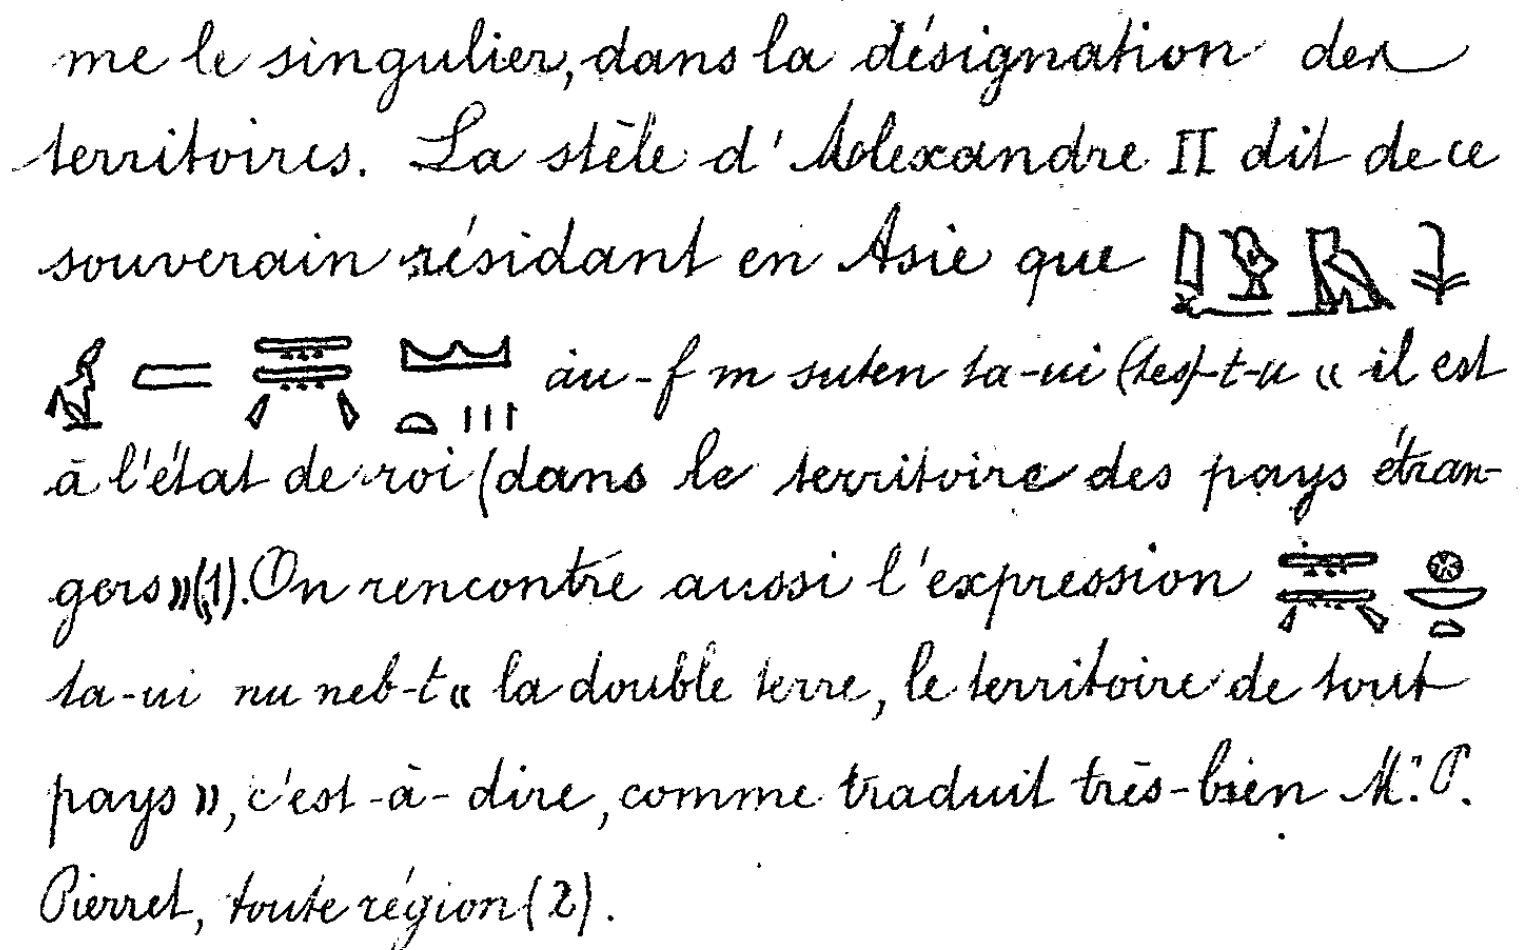 me le singulier, dans la désignation des
territoires. La stèle d'Alexandre II dit de ce
souverain résidant en Asie que
àu-f m suten ta-ui (tes)-t-u « il est
à l'état de roi (dans le territoire des pays étran-
gers » (1). On rencontre aussi l'expression
ta-ui nu neb-t « la double terre, le territoire de tout
pays », c'est-à-dire, comme traduit très-bien Mr. P.
Pierret, toute région (2).